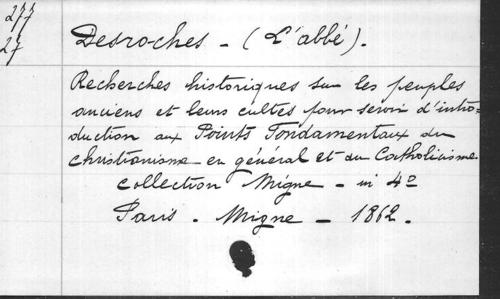 277
27
Desroches - (L'abbé).
Recherches historiques sur les peuples
anciens et leurs cultes pour servir d'intro=
duction aux Points Fondamentaux du
christianisme en général et du Catholicisme
collection Migne - in 4º
Paris. Migne - 1862.